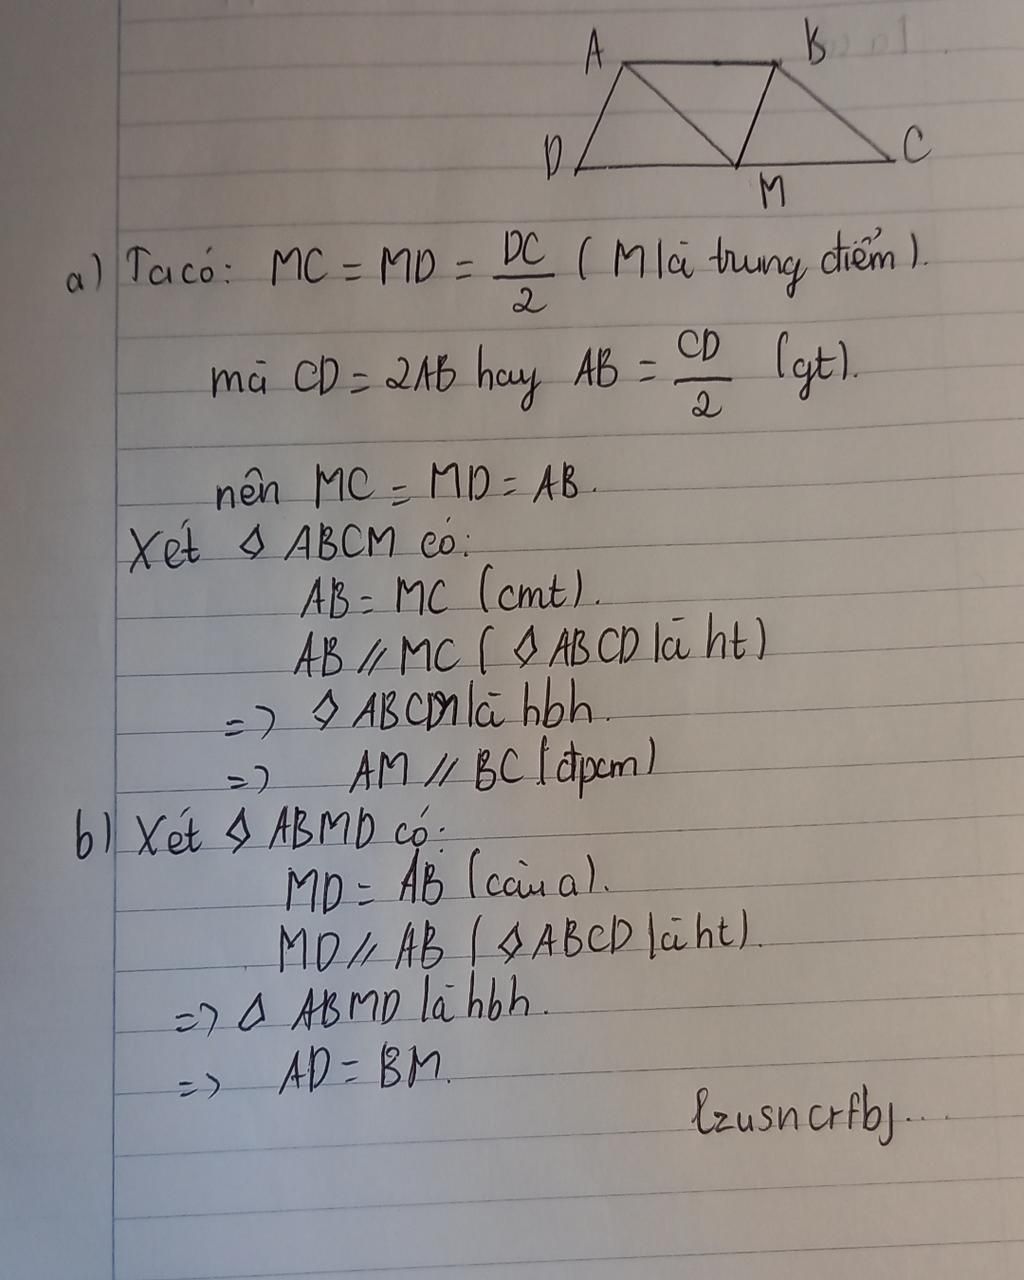 A B
D M C
a) Ta có: MC = MD = DC/2 (M là trung điểm).
mà CD = 2AB hay AB = CD/2 (gt).
nên MC = MD = AB.
Xét ◊ ABCM có:
AB = MC (cmt).
AB // MC ( ◊ ABCD là ht)
=> ◊ ABCM là hbh.
=> AM // BC (đpcm)
b) Xét ◊ ABMD có:
MD = AB (câu a).
MD // AB ( ◊ ABCD là ht).
=> ◊ ABMD là hbh.
=> AD = BM.
lzusncrfbj...